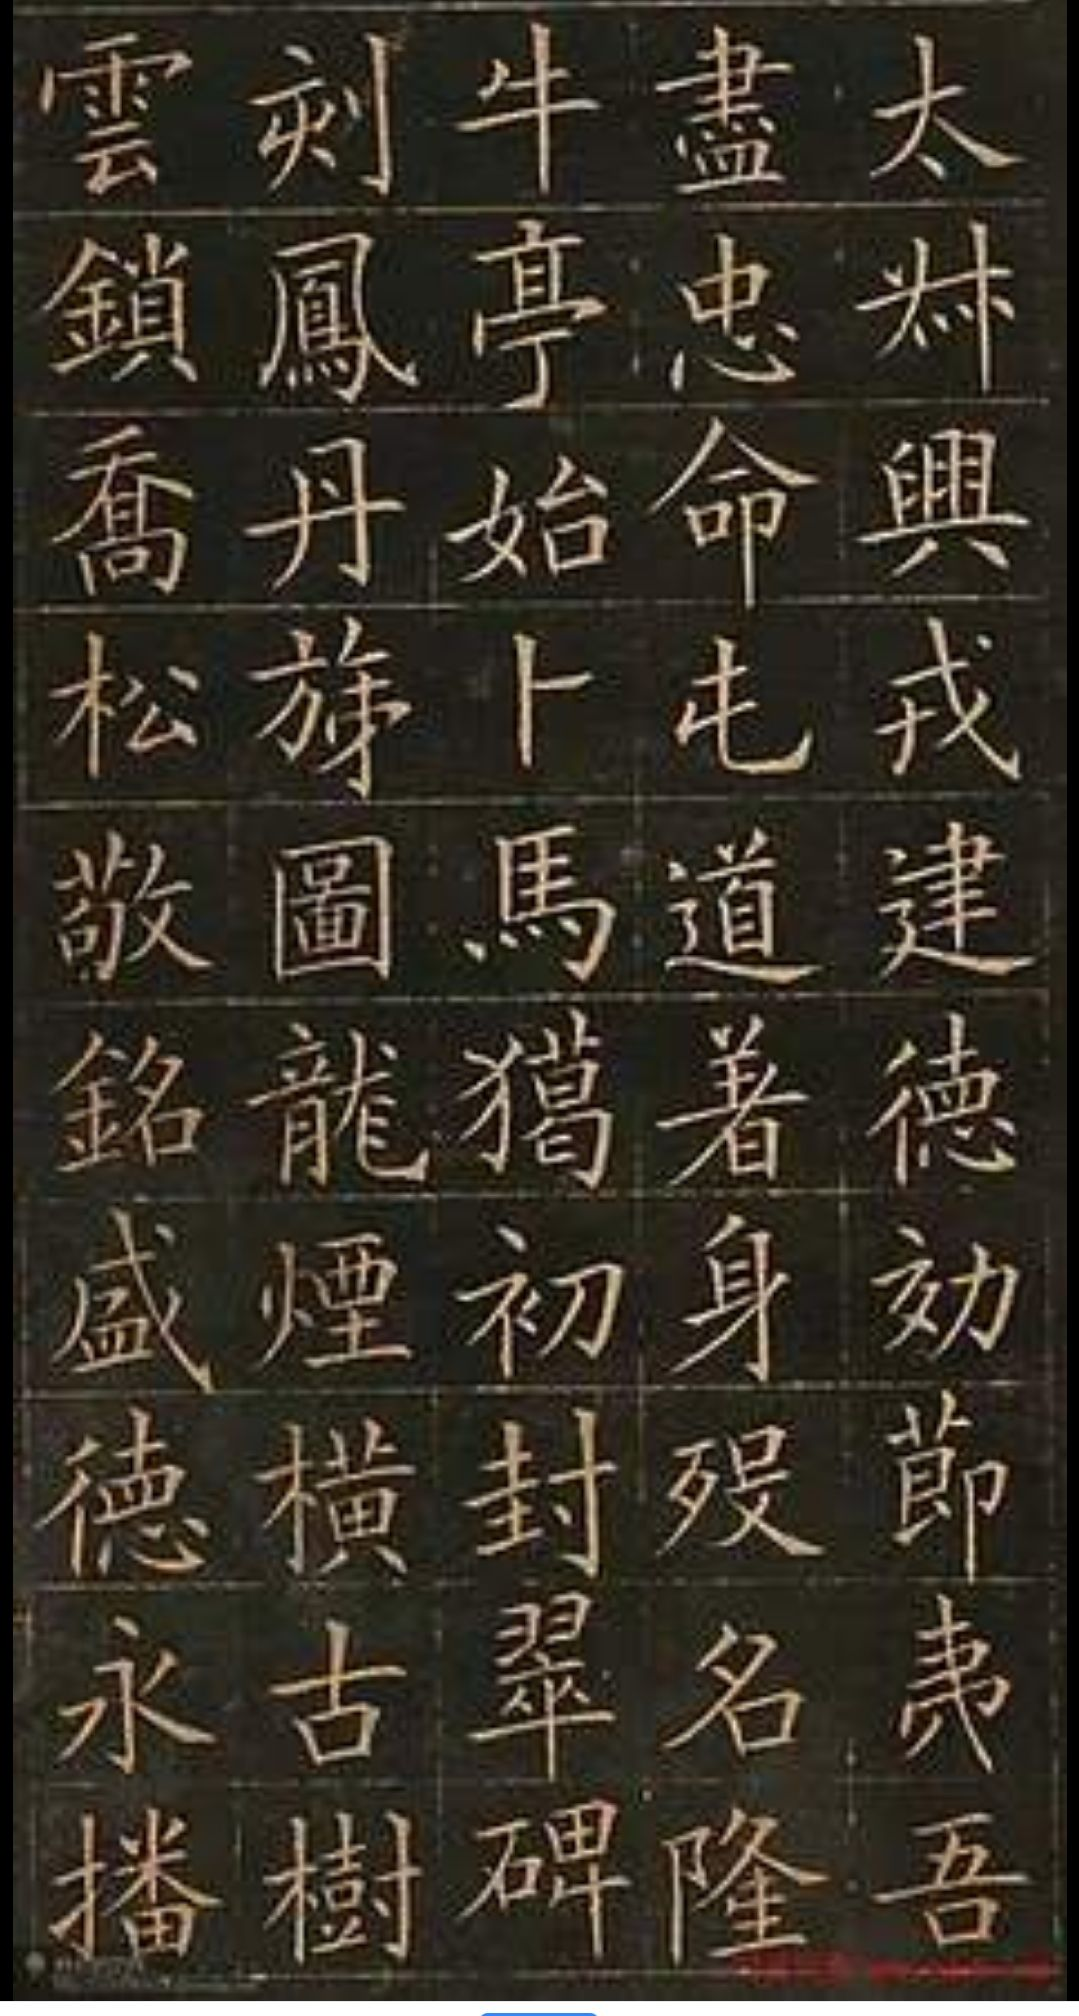 太州興戎建德効節夷吾
盡忠命屯道著身歿名隆
牛亭始卜馬獦初封翠碑
刻鳳丹旌圖龍煙橫古樹
雲鎖喬松敬銘盛德永播